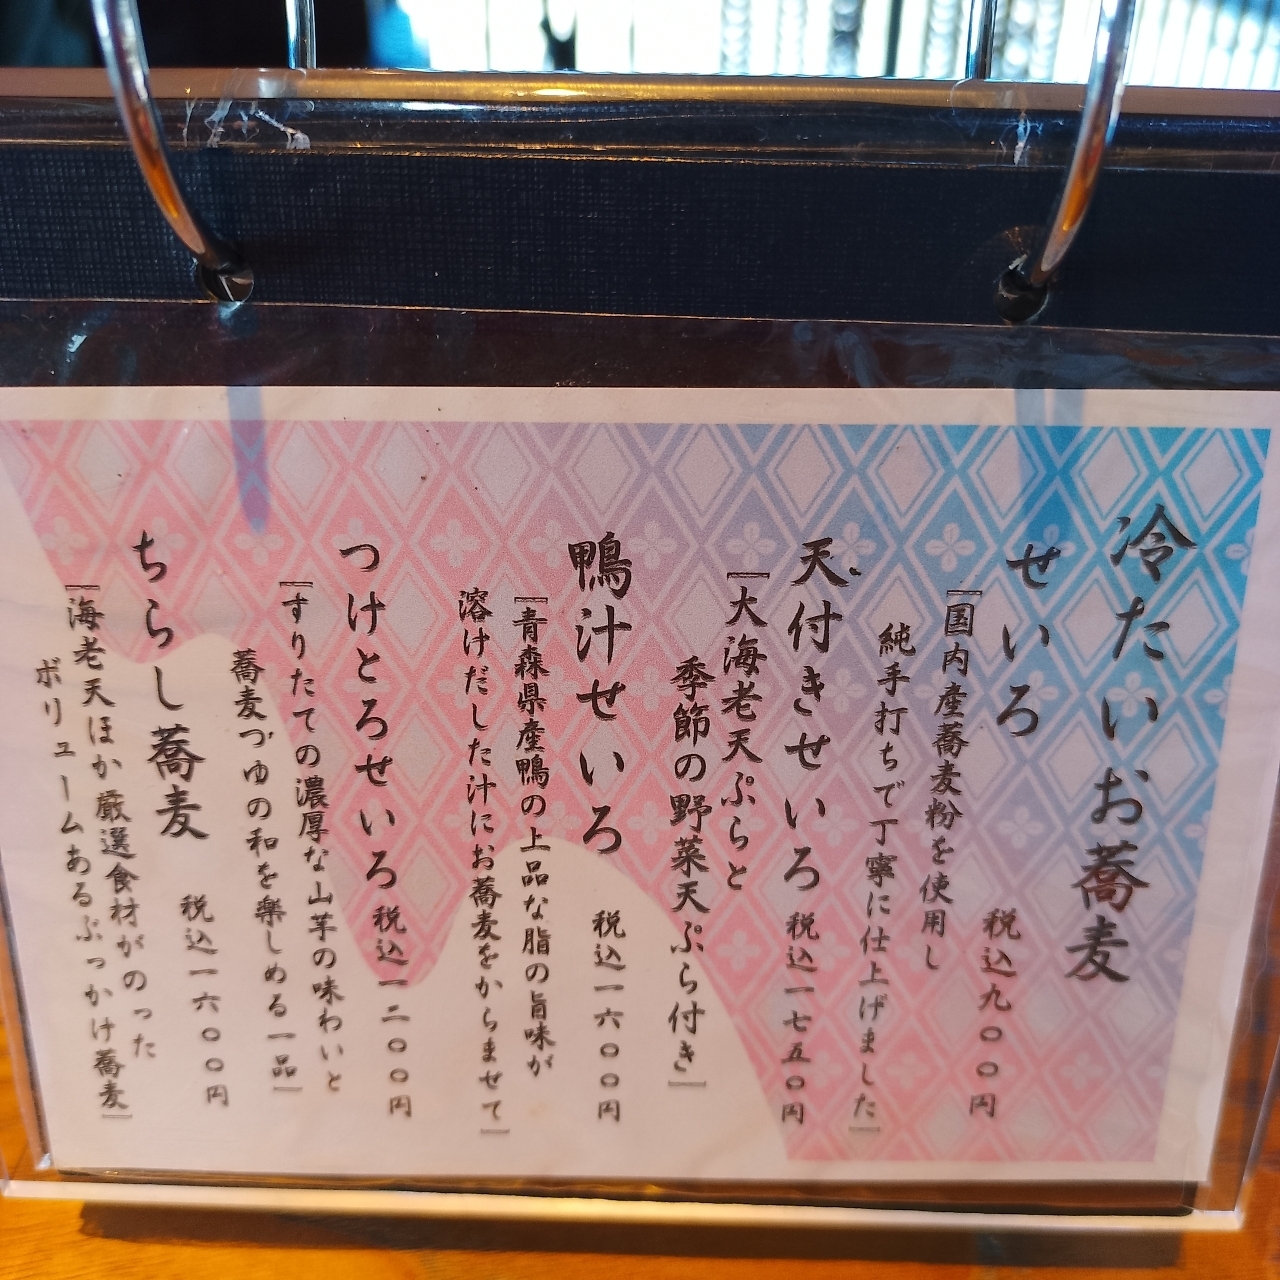 冷たいお蕎麦
せいろ 税込九〇〇円
[国内産蕎麦粉を使用し
純手打ちで丁寧に仕上げました]
天付きせいろ 税込一七五〇円
[大海老天ぷらと
季節の野菜天ぷら付き]
鴨汁せいろ 税込一六〇〇円
[青森県産鴨の上品な脂の旨味が
溶けだした汁にお蕎麦をからませて]
つけとろせいろ 税込一二〇〇円
[すりたての濃厚な山芋の味わいと
蕎麦つゆの和を楽しめる一品]
ちらし蕎麦 税込一六〇〇円
[海老天ほか厳選食材がのった
ボリュームあるぶっかけ蕎麦]